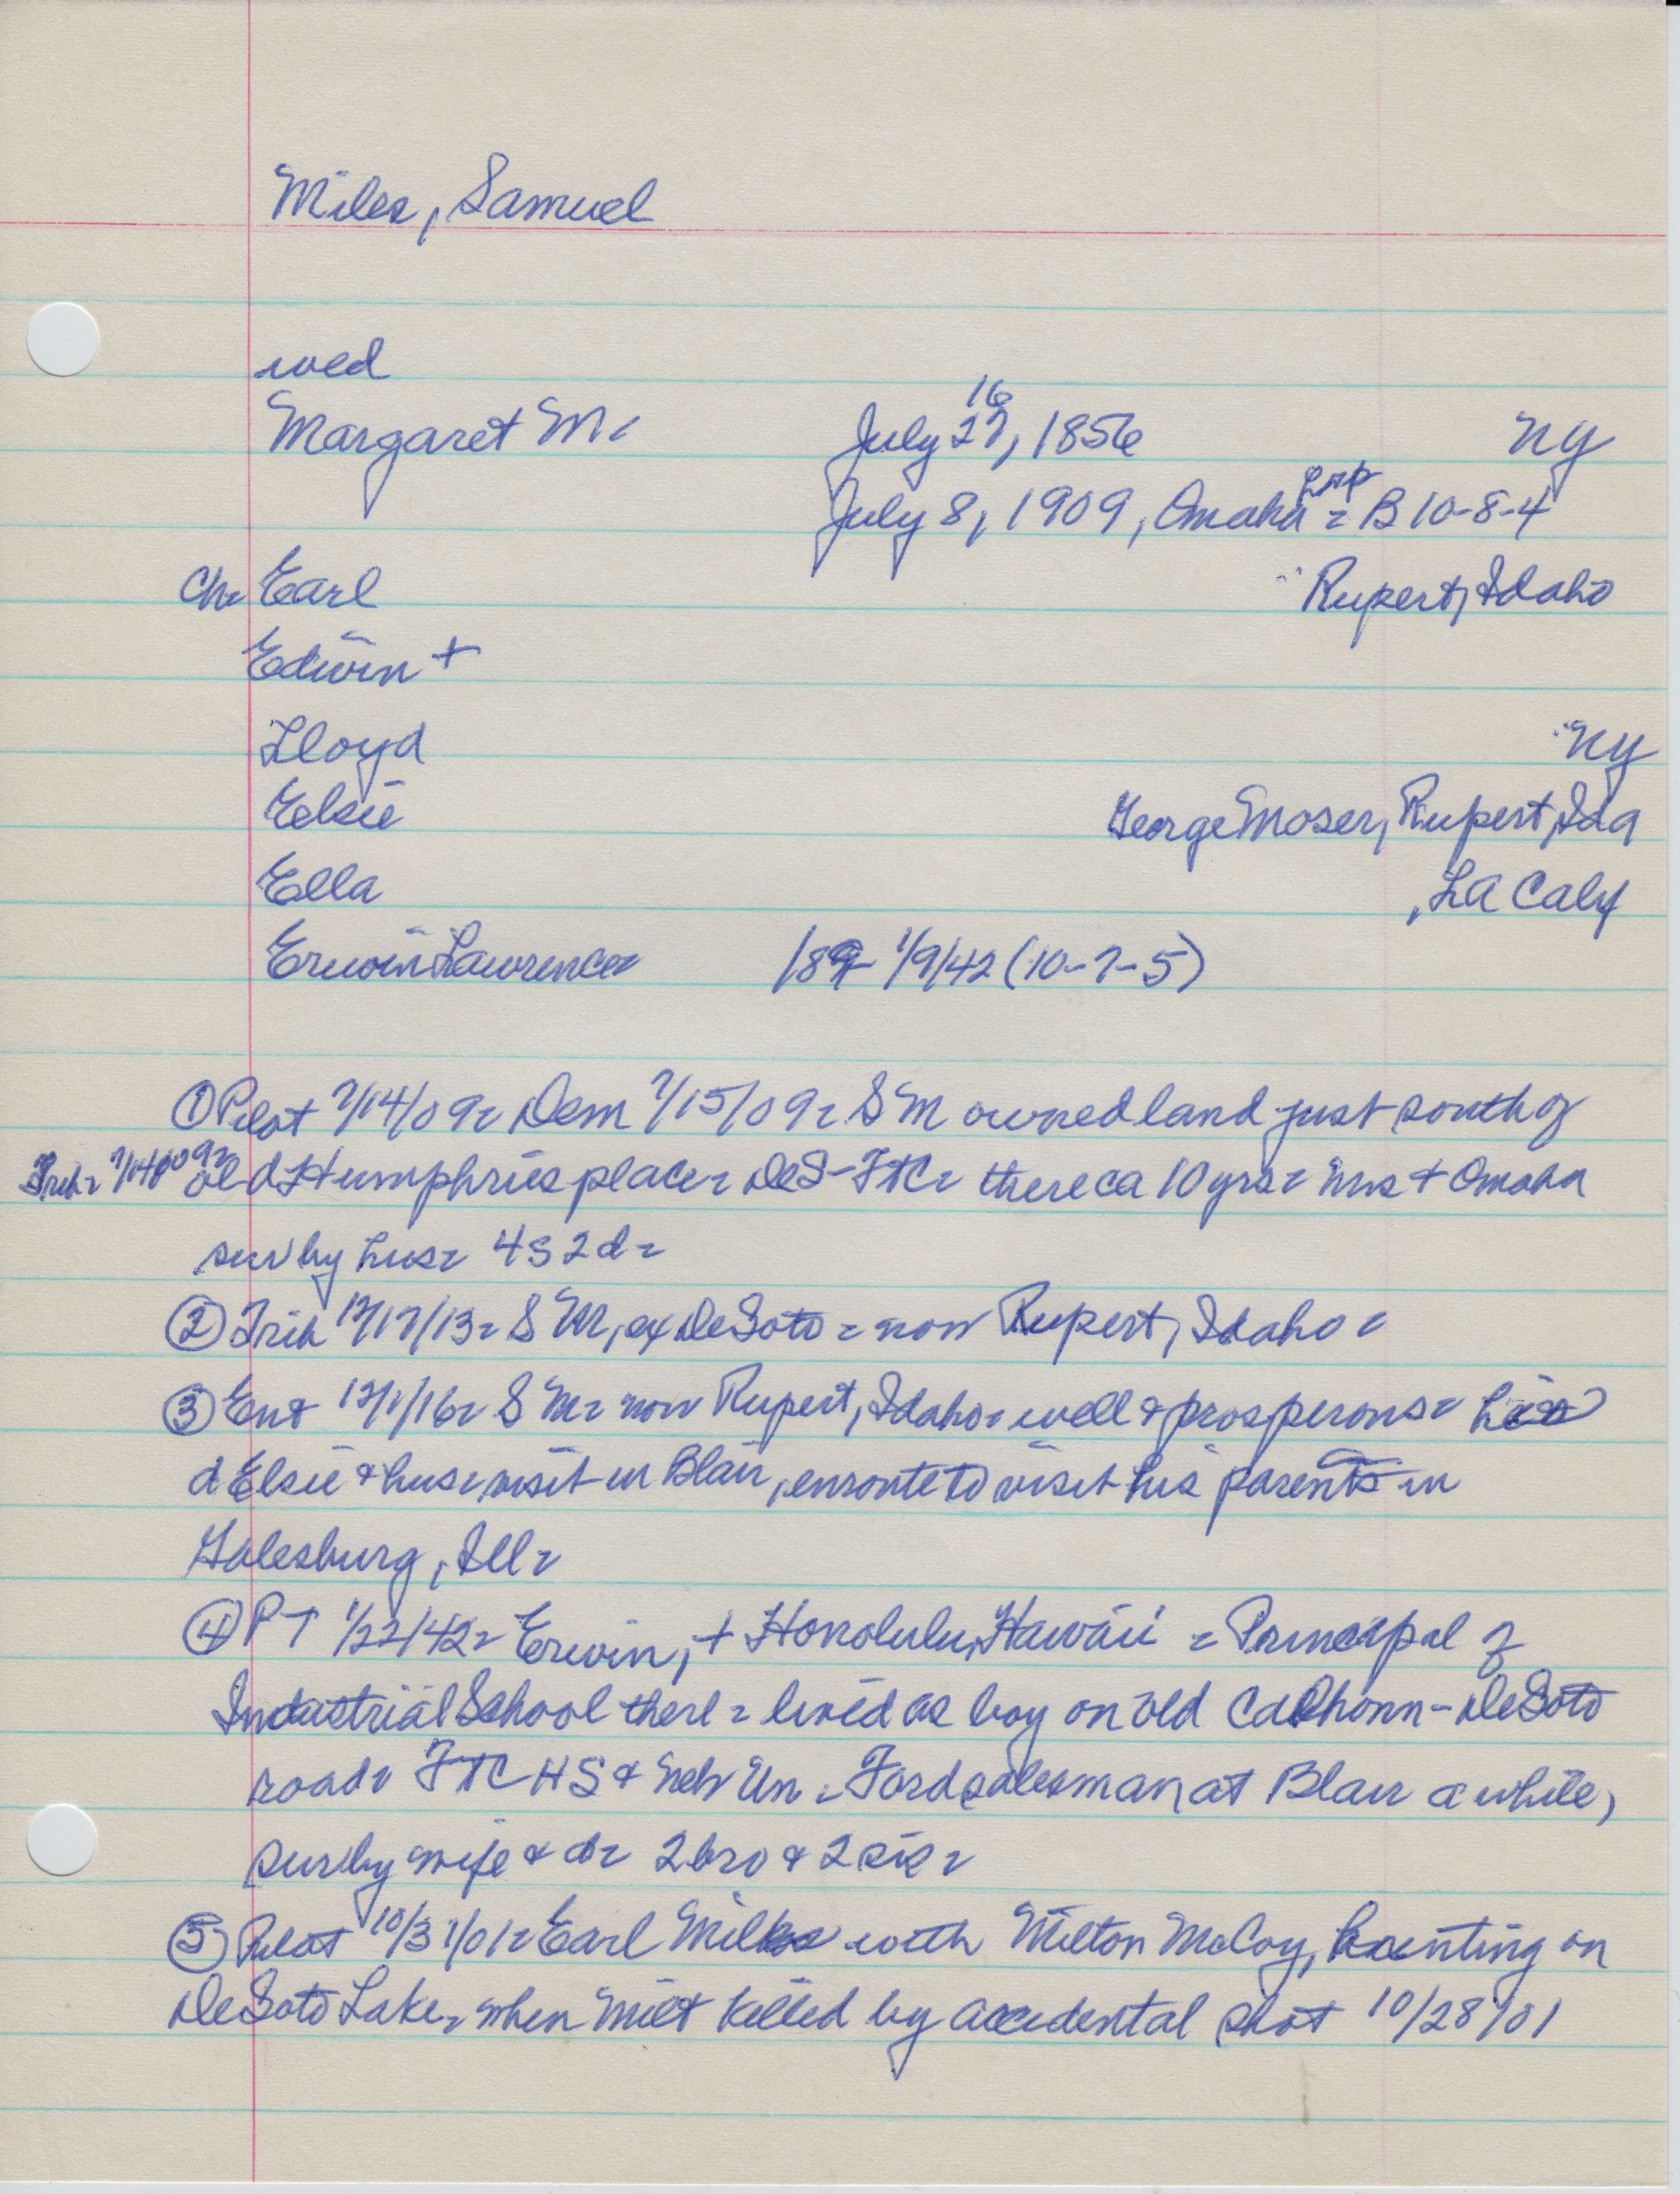 Miles, Samuel
wed
16
Margaret M= July 27, 1856 NY
July 8, 1909, Omaha hsp = B 10-8-4
Ch= Earl Rupert, Idaho
Edwin +
Lloyd NY
Elsie George Moser, Rupert, Ida
Ella , LA Calif
Erwin Lawrence= 189 1/9/42 (10-7-5)
① Pilot 7/14/09= Dem 7/15/09= SM owned land just south of
Trib= 7/14/09= old Humphries place= DeS-FtC= there ca 10 yrs= Mrs + Omaha
sur by hus= 4s 2d=
② Trib 12/17/13= SM, ex DeSoto = now Rupert, Idaho=
③ Ent 12/1/16= SM= now Rupert, Idaho= well & prosperous= his
d Elsie & hus= visit in Blair, enroute to visit his parents in
Galesburg, Ill=
④ PT 1/22/42= Erwin, + Honolulu, Hawaii = Principal of
Industrial School there = lived as boy on old Calhoun-DeSoto
road= FTC HS & Neb Un = Ford salesman at Blair a while,
sur by wife & d= 2 bro & 2 sis=
⑤ Pilot 10/31/01= Earl Miles with Milton McCoy, hunting on
DeSoto Lake, when Milt killed by accidental shot 10/28/01